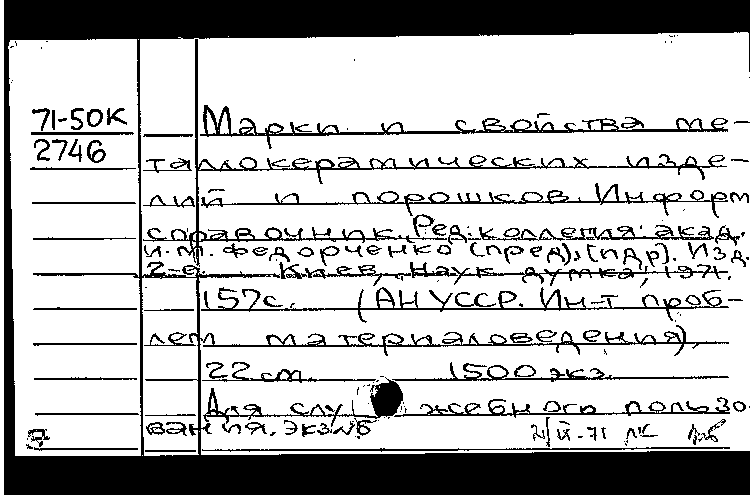 71-50К
2746
Марки и свойства ме-
таллокерамических изде-
лий и порошков. Информ
справочник. Ред. коллегия: акад.
И.М. Федорченко (пред), [и др]. Изд.
2-е. Киев, "Наук думка", 1971.
157с. (АН УССР. Ин-т проб-
лем материаловедения),
22 см. 1500 экз.
Для служебного пользо
вания. экз№6
2/IX-71